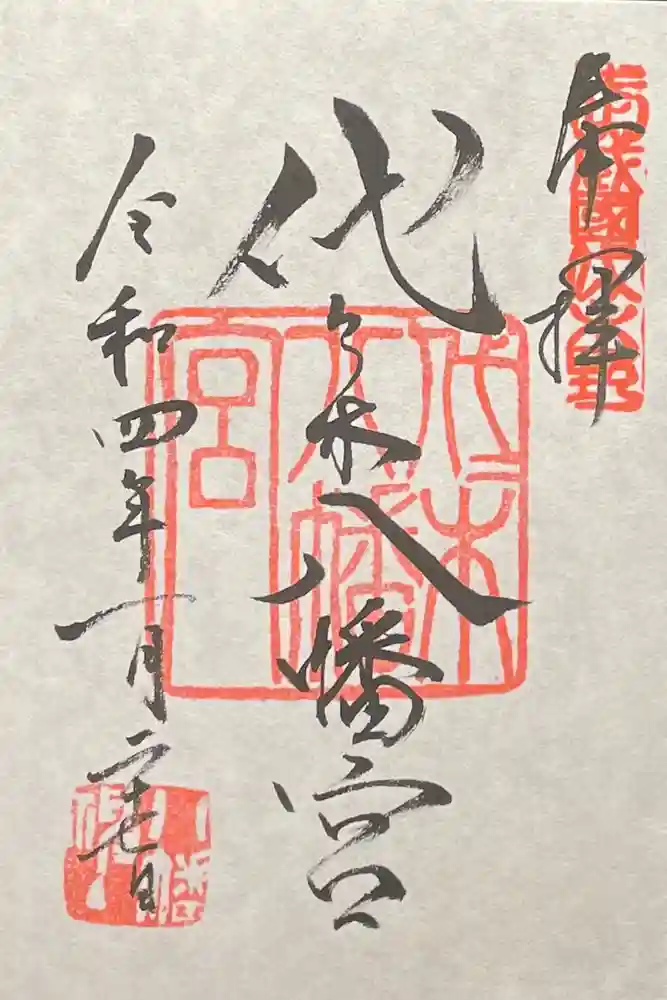 奉拝
代々木八幡宮
令和四年一月二十七日
代々木八幡宮